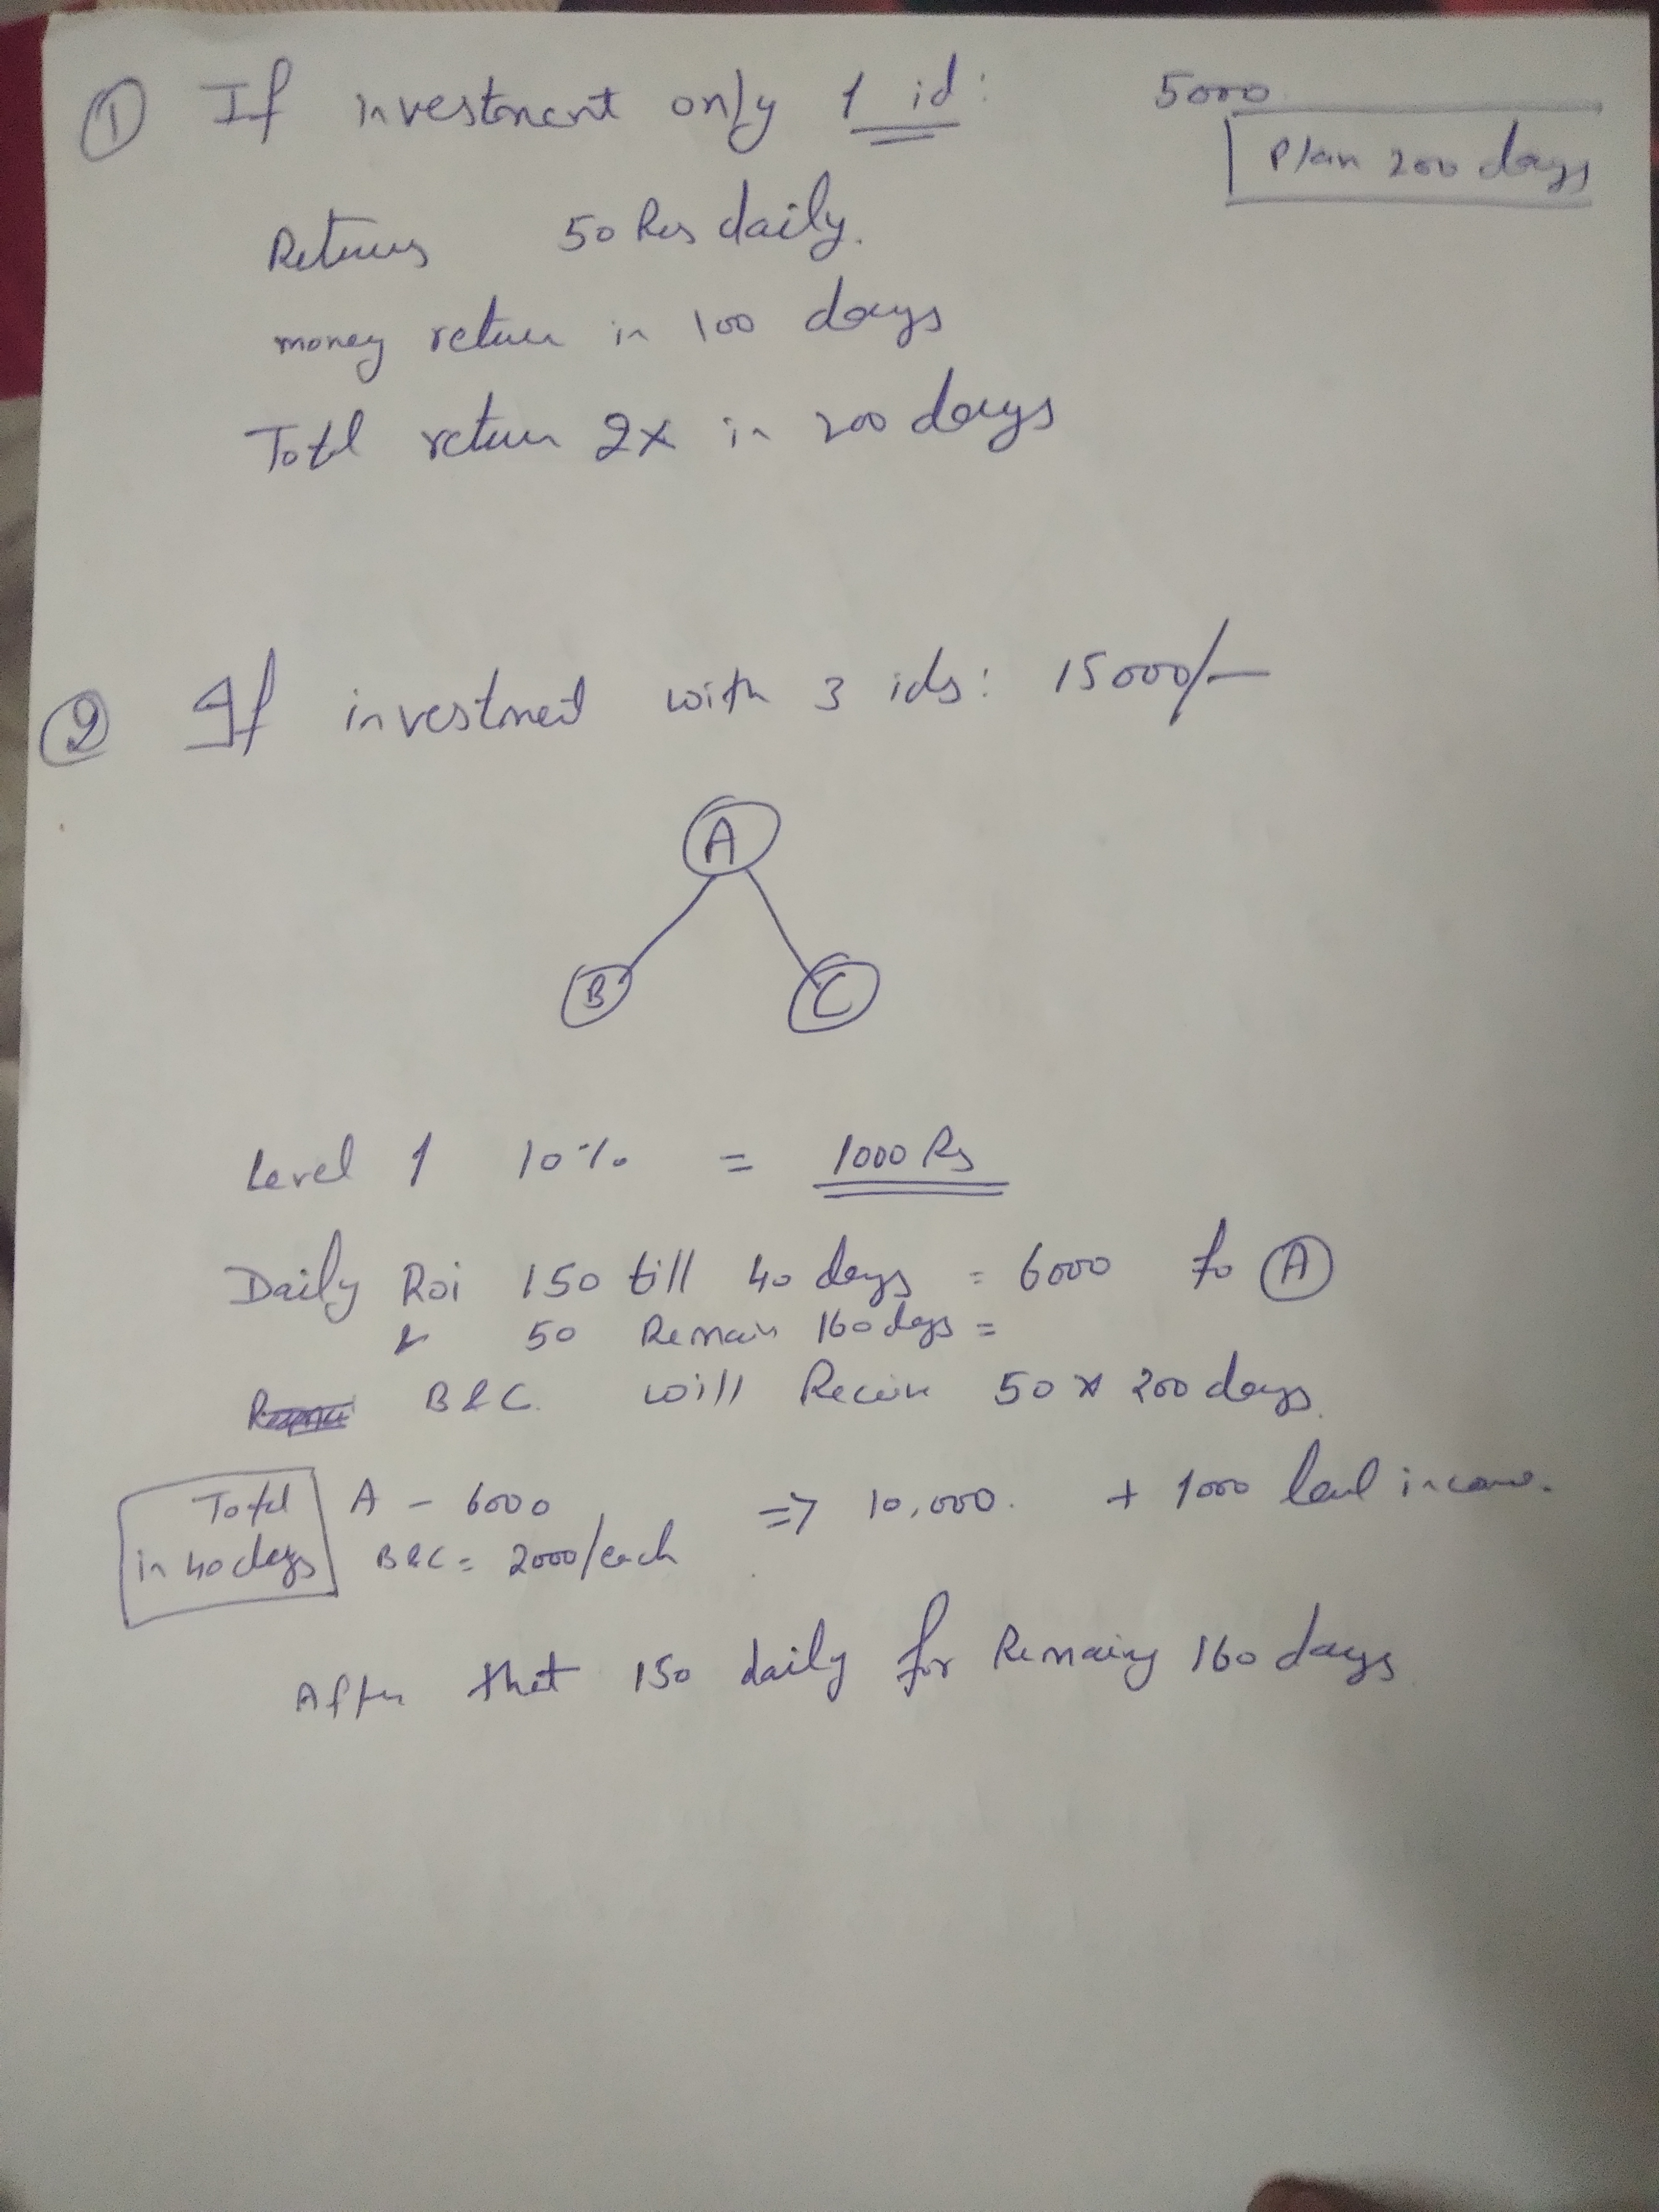 ① If investment only 1 id: 5000
Plan 200 days
Returns 50 Rs daily.
money return in 100 days
Totl return 2x in 200 days
② If investment with 3 ids: 15000/-
A
B C
Level 1 10% = 1000 Rs
Daily Roi 150 till 40 days = 6000 to A
& 50 Remain 160 days =
B & C. will Receive 50 x 200 days.
Total A - 6000 => 10,000. + 1000 level income.
in 40 days B&C = 2000/each
After that 150 daily for Remaing 160 days